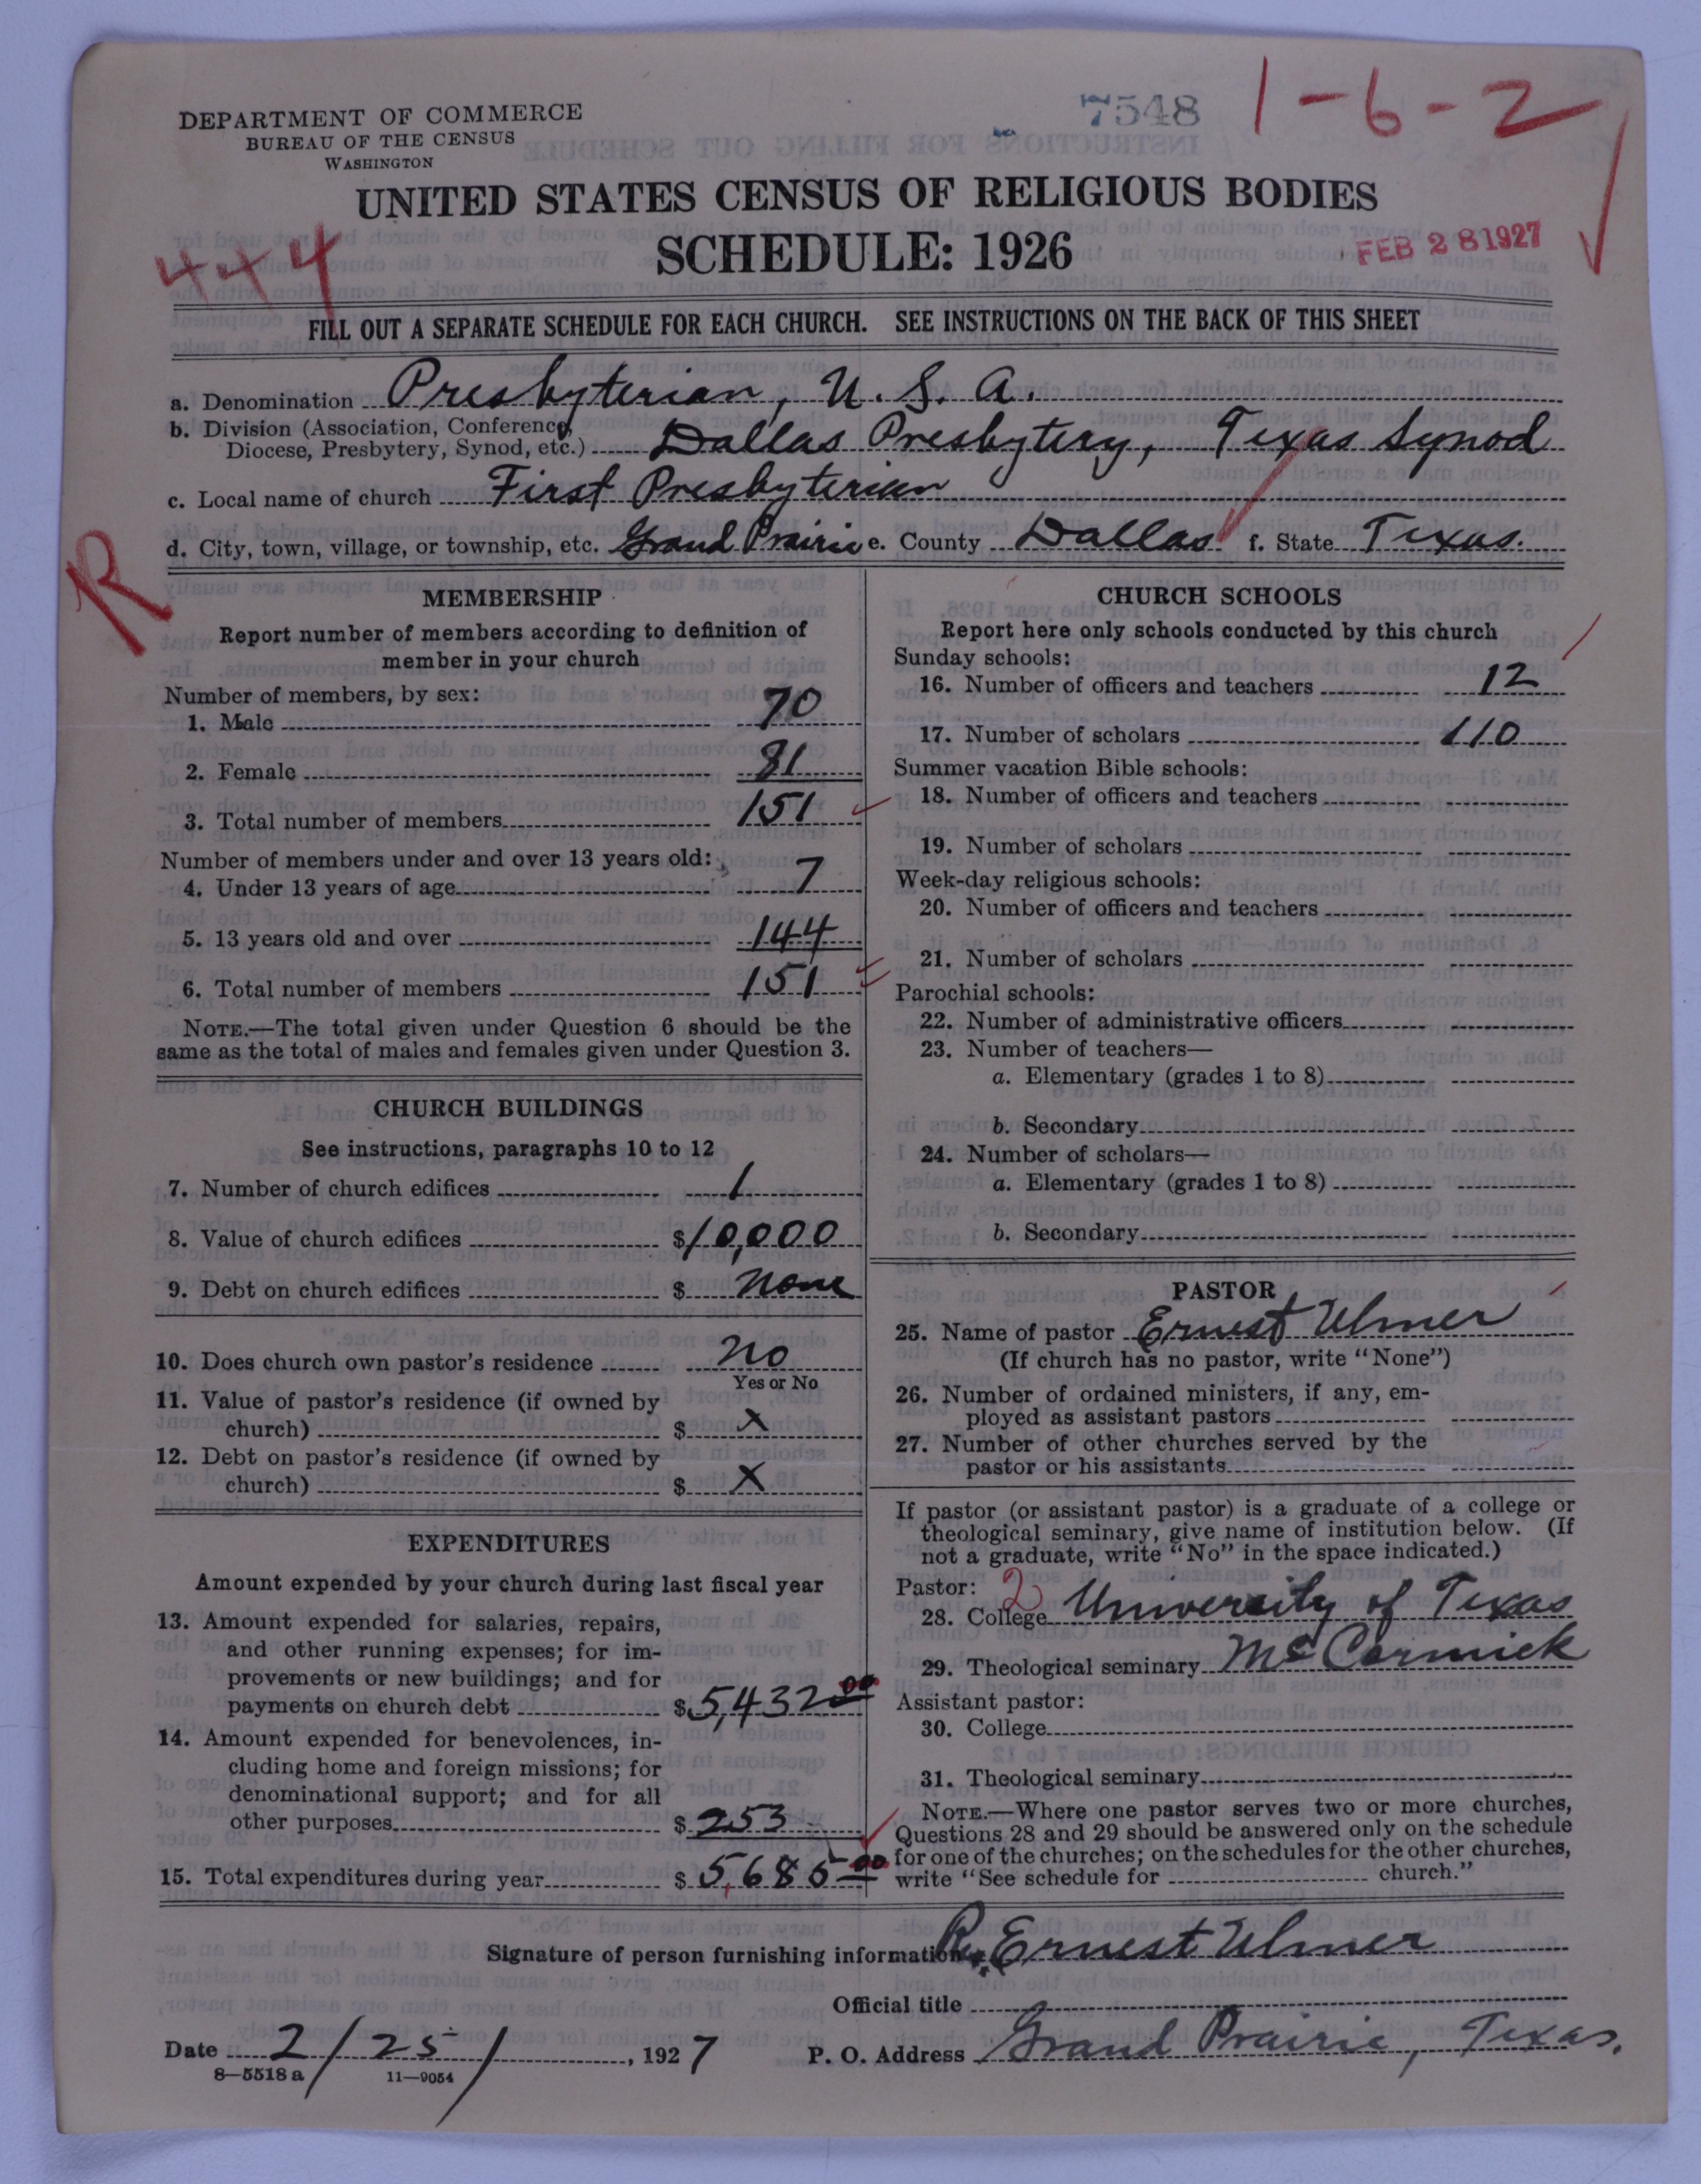 DEPARTMENT OF COMMERCE
BUREAU OF THE CENSUS
WASHINGTON
7548
1-6-2
UNITED STATES CENSUS OF RELIGIOUS BODIES
SCHEDULE: 1926
444
FEB 28 1927
FILL OUT A SEPARATE SCHEDULE FOR EACH CHURCH. SEE INSTRUCTIONS ON THE BACK OF THIS SHEET
a. Denomination Presbyterian, U. S. A.
b. Division (Association, Conference,
Diocese, Presbytery, Synod, etc.) Dallas Presbytery, Texas Synod
c. Local name of church First Presbyterian
d. City, town, village, or township, etc. Grand Prairie e. County Dallas f. State Texas.
R
MEMBERSHIP
Report number of members according to definition of
member in your church
Number of members, by sex:
1. Male 70
2. Female 81
3. Total number of members 151
Number of members under and over 13 years old:
4. Under 13 years of age 7
5. 13 years old and over 144
6. Total number of members 151
NOTE.—The total given under Question 6 should be the
same as the total of males and females given under Question 3.
CHURCH BUILDINGS
See instructions, paragraphs 10 to 12
7. Number of church edifices 1
8. Value of church edifices $10,000
9. Debt on church edifices $ None
10. Does church own pastor's residence No
Yes or No
11. Value of pastor's residence (if owned by
church) $ X
12. Debt on pastor's residence (if owned by
church) $ X
EXPENDITURES
Amount expended by your church during last fiscal year
13. Amount expended for salaries, repairs,
and other running expenses; for im-
provements or new buildings; and for
payments on church debt $5,432 00
14. Amount expended for benevolences, in-
cluding home and foreign missions; for
denominational support; and for all
other purposes $253
15. Total expenditures during year $5,685 00
CHURCH SCHOOLS
Report here only schools conducted by this church
Sunday schools:
16. Number of officers and teachers 12
17. Number of scholars 110
Summer vacation Bible schools:
18. Number of officers and teachers
19. Number of scholars
Week-day religious schools:
20. Number of officers and teachers
21. Number of scholars
Parochial schools:
22. Number of administrative officers
23. Number of teachers—
a. Elementary (grades 1 to 8)
b. Secondary
24. Number of scholars—
a. Elementary (grades 1 to 8)
b. Secondary
PASTOR
25. Name of pastor Ernest Ulmer
(If church has no pastor, write "None")
26. Number of ordained ministers, if any, em-
ployed as assistant pastors
27. Number of other churches served by the
pastor or his assistants
If pastor (or assistant pastor) is a graduate of a college or
theological seminary, give name of institution below. (If
not a graduate, write "No" in the space indicated.)
Pastor: 2
28. College University of Texas
29. Theological seminary McCormick
Assistant pastor:
30. College
31. Theological seminary
NOTE.—Where one pastor serves two or more churches,
Questions 28 and 29 should be answered only on the schedule
for one of the churches; on the schedules for the other churches,
write "See schedule for church."
Signature of person furnishing information Rev. Ernest Ulmer
Official title
Date 2/25/, 1927
P. O. Address Grand Prairie, Texas.
8—5518 a 11—9054